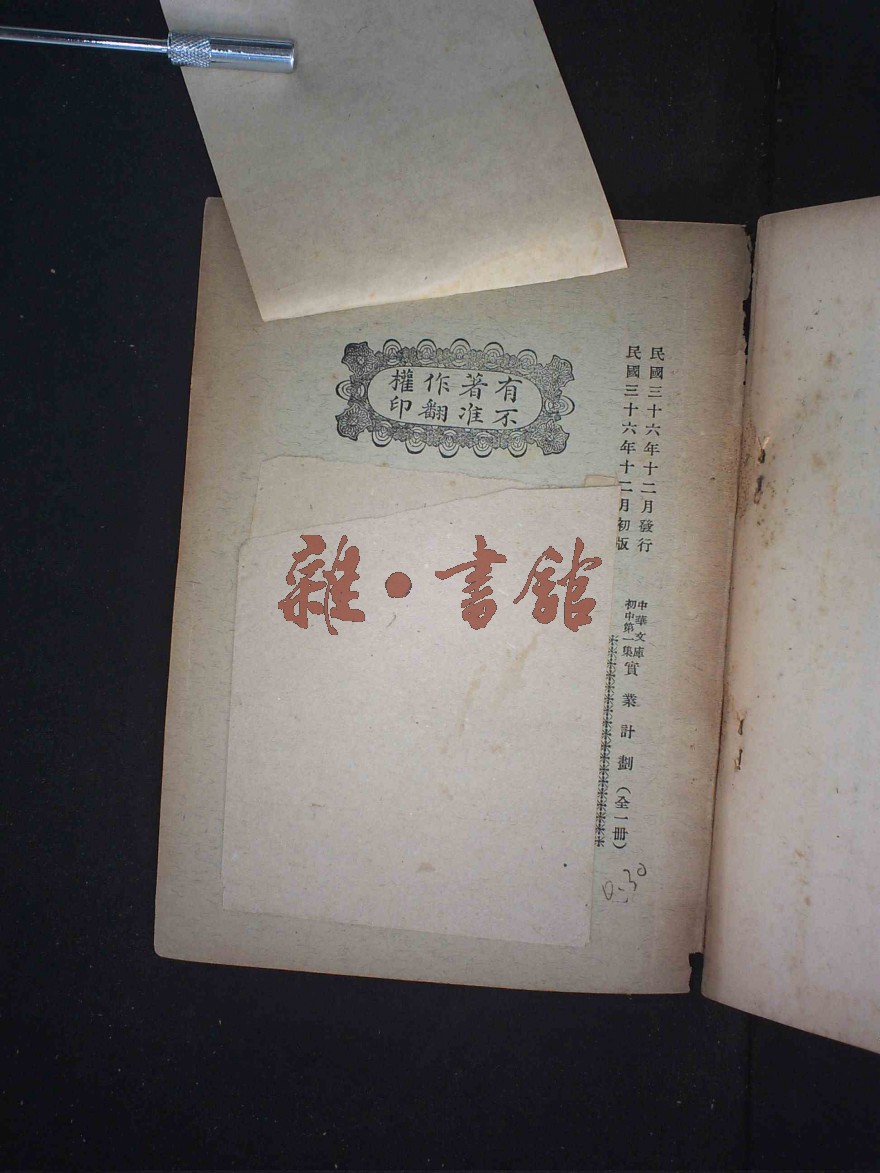 民國三十六年十二月發行
民國三十六年十二月初版
中華文庫
初中第一集
實業計劃（全一冊）
有著作權
不准翻印
雜·書館
0.30